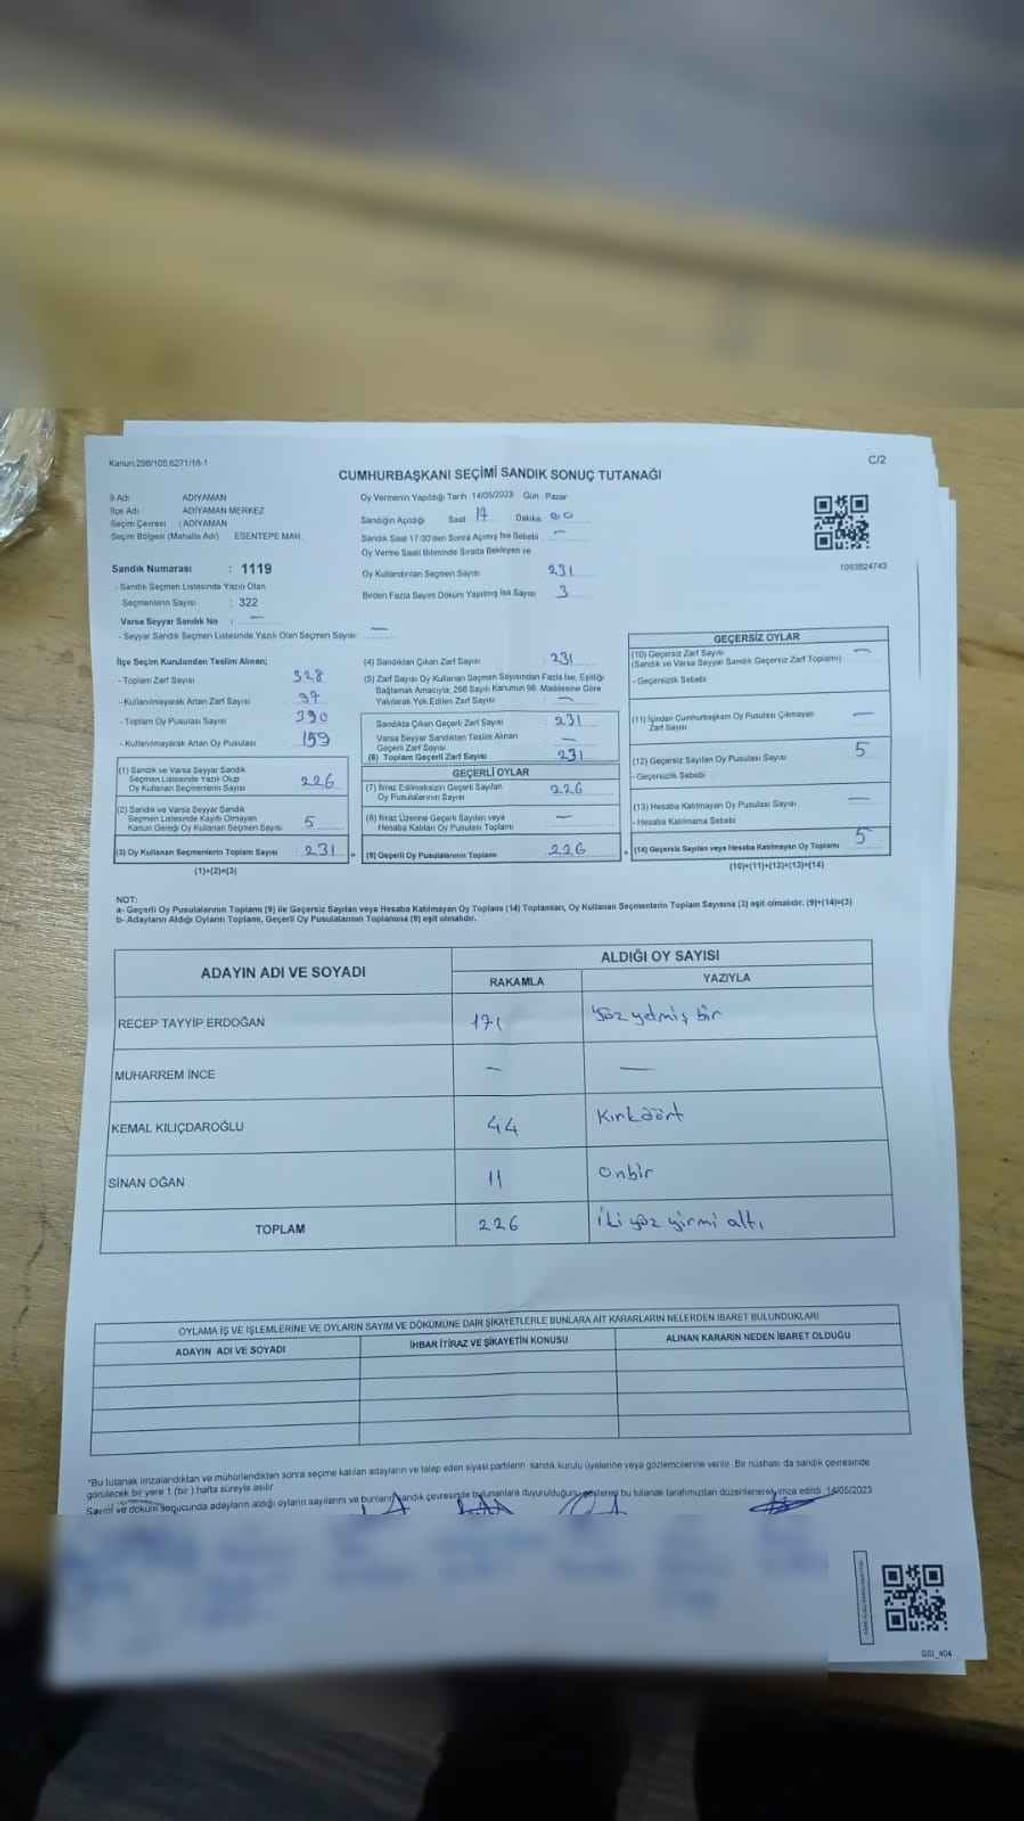 Kanun:298/105,6271/16-1
C/2
CUMHURBAŞKANI SEÇİMİ SANDIK SONUÇ TUTANAĞI
İl Adı ADIYAMAN
İlçe Adı ADIYAMAN MERKEZ
Seçim Çevresi : ADIYAMAN
Seçim Bölgesi (Mahalle Adı) ESENTEPE MAH.
Sandık Numarası : 1119
- Sandık Seçmen Listesinde Yazılı Olan
Seçmenlerin Sayısı : 322
Varsa Seyyar Sandık No : —
- Seyyar Sandık Seçmen Listesinde Yazılı Olan Seçmen Sayısı —
Oy Vermenin Yapıldığı Tarih 14/05/2023 Gün : Pazar
Sandığın Açıldığı Saat 17 Dakika 00
Sandık Saat 17:00'den Sonra Açılmış İse Sebebi —
Oy Verme Saati Bitiminde Sırada Bekleyen ve
Oy Kullandırılan Seçmen Sayısı 231
Birden Fazla Sayım Döküm Yapılmış İse Sayısı 3
1093824743
İlçe Seçim Kurulundan Teslim Alınan;
- Toplam Zarf Sayısı 328
- Kullanılmayarak Artan Zarf Sayısı 97
- Toplam Oy Pusulası Sayısı 390
- Kullanılmayarak Artan Oy Pusulası 159
(1) Sandık ve Varsa Seyyar Sandık
Seçmen Listesinde Yazılı Olup
Oy Kullanan Seçmenlerin Sayısı 226
(2) Sandık ve Varsa Seyyar Sandık
Seçmen Listesinde Kayıtlı Olmayan
Kanun Gereği Oy Kullanan Seçmen Sayısı 5
(3) Oy Kullanan Seçmenlerin Toplam Sayısı 231
(1)+(2)=(3)
(4) Sandıktan Çıkan Zarf Sayısı 231
(5) Zarf Sayısı Oy Kullanan Seçmen Sayısından Fazla İse, Eşitliği
Sağlamak Amacıyla, 298 Sayılı Kanunun 98. Maddesine Göre
Yakılarak Yok Edilen Zarf Sayısı —
Sandıkta Çıkan Geçerli Zarf Sayısı 231
Varsa Seyyar Sandıktan Teslim Alınan
Geçerli Zarf Sayısı —
(6) Toplam Geçerli Zarf Sayısı 231
GEÇERLİ OYLAR
(7) İtiraz Edilmeksizin Geçerli Sayılan
Oy Pusulalarının Sayısı 226
(8) İtiraz Üzerine Geçerli Sayılan veya
Hesaba Katılan Oy Pusulası Toplamı —
(9) Geçerli Oy Pusulalarının Toplamı 226
GEÇERSİZ OYLAR
(10) Geçersiz Zarf Sayısı —
(Sandık ve Varsa Seyyar Sandık Geçersiz Zarf Toplamı)
- Geçersizlik Sebebi
(11) İçinden Cumhurbaşkanı Oy Pusulası Çıkmayan
Zarf Sayısı —
(12) Geçersiz Sayılan Oy Pusulası Sayısı 5
- Geçersizlik Sebebi
(13) Hesaba Katılmayan Oy Pusulası Sayısı —
- Hesaba Katılmama Sebebi
(14) Geçersiz Sayılan veya Hesaba Katılmayan Oy Toplamı 5
(10)+(11)+(12)+(13)=(14)
NOT:
a- Geçerli Oy Pusulalarının Toplamı (9) ile Geçersiz Sayılan veya Hesaba Katılmayan Oy Toplamı (14) Toplamları, Oy Kullanan Seçmenlerin Toplam Sayısına (3) eşit olmalıdır. (9)+(14)=(3)
b- Adayların Aldığı Oyların Toplamı, Geçerli Oy Pusulalarının Toplamına (9) eşit olmalıdır.
ADAYIN ADI VE SOYADI
ALDIĞI OY SAYISI
RAKAMLA YAZIYLA
RECEP TAYYİP ERDOĞAN 171 Yüz yetmiş bir
MUHARREM İNCE — —
KEMAL KILIÇDAROĞLU 44 Kırkdört
SİNAN OĞAN 11 onbir
TOPLAM 226 iki yüz yirmi altı
OYLAMA İŞ VE İŞLEMLERİNE VE OYLARIN SAYIM VE DÖKÜMÜNE DAİR ŞİKAYETLERLE BUNLARA AİT KARARLARIN NELERDEN İBARET BULUNDUKLARI
ADAYIN ADI VE SOYADI İHBAR İTİRAZ VE ŞİKAYETİN KONUSU ALINAN KARARIN NEDEN İBARET OLDUĞU
*Bu tutanak imzalandıktan ve mühürlendikten sonra seçime katılan adayların ve talep eden siyasi partilerin sandık kurulu üyelerine veya gözlemcilerine verilir. Bir nüshası da sandık çevresinde
görülecek bir yere 1 (bir) hafta süreyle asılır.
Sayım ve döküm sonucunda adayların aldığı oyların sayılarını ve bunların sandık çevresinde bulunanlara duyurulduğunu gösteren bu tutanak tarafımızdan düzenlenerek imza edildi. 14/05/2023